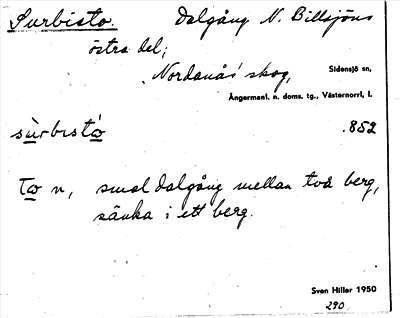 Surbisto. Dalgång N. Billsjöns
östra del;
Nordanås' skog, Sidensjö sn,
Ångermanl. n. doms. tg., Västernorrl, l.
sùrbistω .852
Tω n, smal dalgång mellan två berg,
sänka i ett berg.
Sven Hiller 1950
290